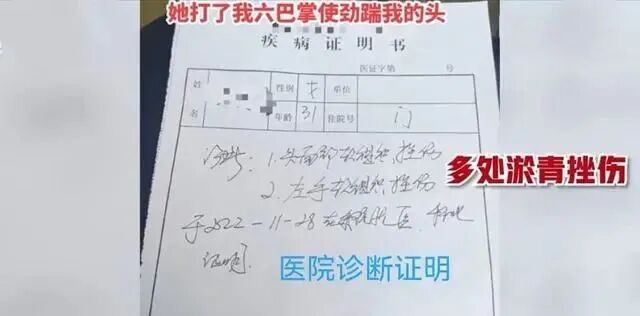 她打了我六巴掌使劲踹我的头
疾病证明书
医证字第 号
姓名 性别 女 单位
年龄 31 住院号 门
诊断：1.头面部软组织挫伤
2.左手软组织挫伤
多处淤青挫伤
于2022-11-28在我院就医，特此
证明
医院诊断证明